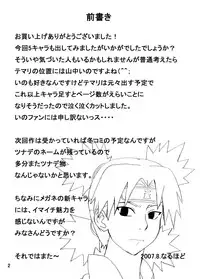 前書き
お買い上げありがとうございます！
今回5キャラも出してみましたがいかがでしたでしょうか？
そういや気づいた人もいるかもしれませんが普通考えたら
テマリの位置には山中いのですよね(^^；
いのも出そうと思ったんですけどテマリは元々出す予定で
これ以上キャラ足すとページ数がえらいことに
なりそうだったので泣く泣くカットしました。
いのファンには申し訳ないッス・・・・
次回作は予定では冬コミの予定なんですが
ツナデのネームが残っているので
多分またツナデ
なんじゃないかと思います。
ちなみにメガネの新キャラには、
イマイチ魅力を
感じないんですが
みなさんどうですか？
それではまた～
2007.8.なるほど
2